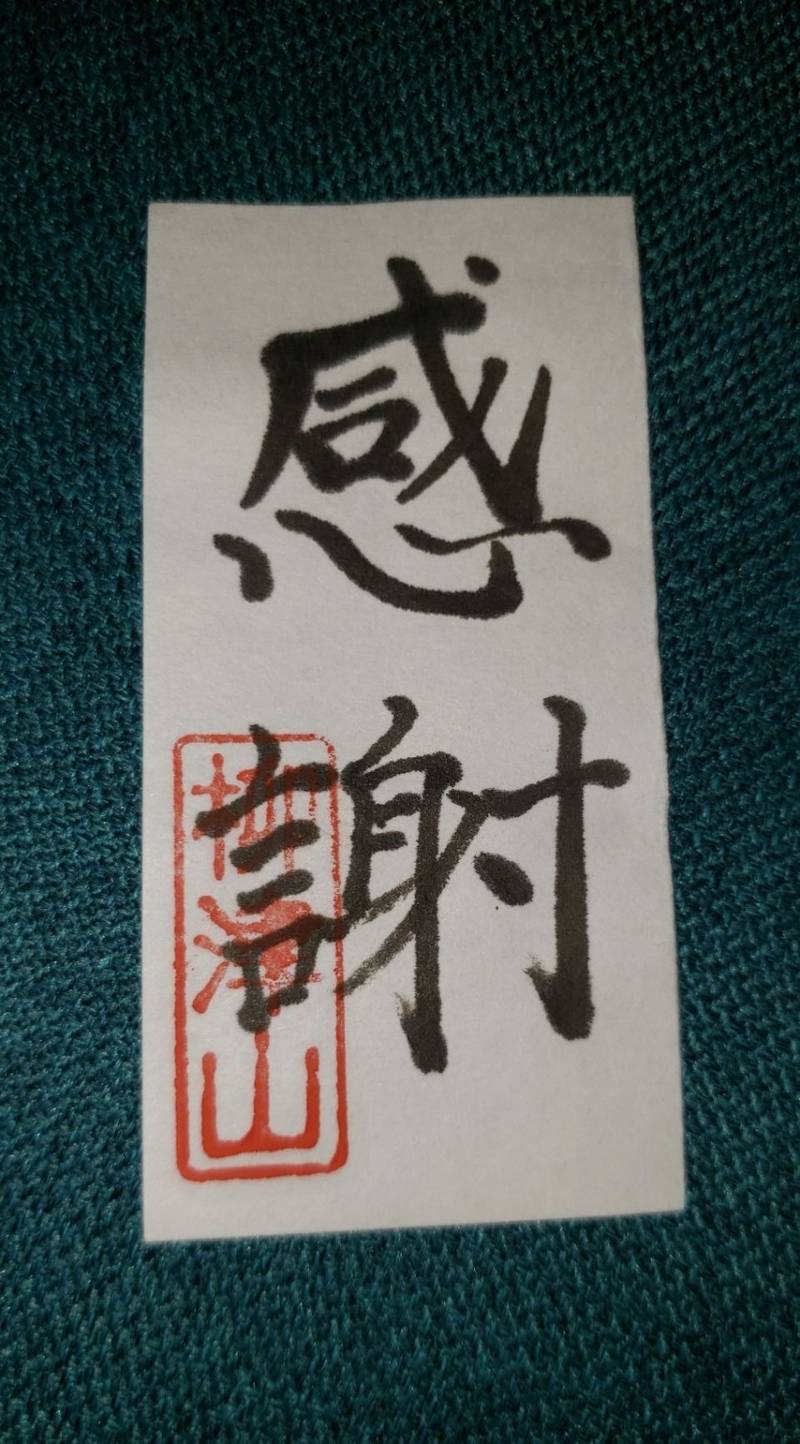 感謝
山